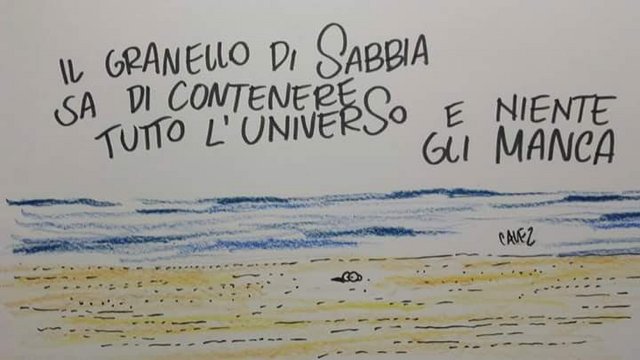 IL GRANELLO DI SABBIA
SA DI CONTENERE
TUTTO L'UNIVERSO
E NIENTE
GLI MANCA
CAVEZ